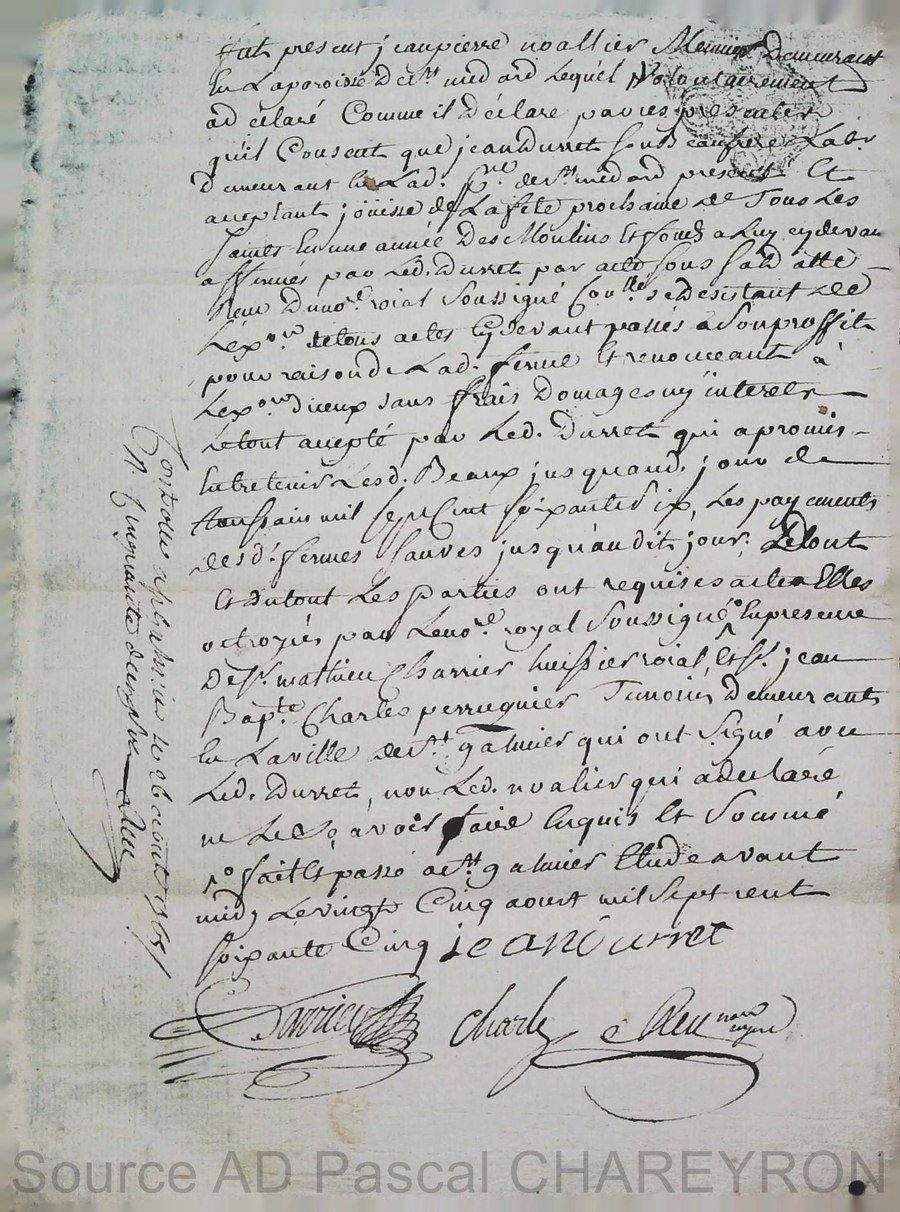 fut present jeanpierre noallier Meunier Demeurant
En Laparoisse de st medard Lequel Volontairement
ad eclaré Comme il Declare par ces presentes
quil Consent que jean Durret son beaufrere Labr
demeurant En Lad. pne de st medard present Et
aceptant joüisse de Lafete prochaine de Tous Les
saints En une année Des Moulins Et fonds a Luy cydevan
affermes par Led. Durret par acte sous sa datte
Reçu Dunore. roial Soussigné se desistant de
L'exon de tous actes Cydevant passés a Son proffit
pour raison de Lad. ferme Et renonceant à
Lexon diceux sans frais Domages ny interets
Letout accepté par Led. Durret qui a promis
Entretenir Lesd. Beaux jusquaud. jour de
toussain mil sept Cent soixante six, Les payements
desd. fermes sauves jusqu'audit jour. Letout
Et dutout Les parties ont requis acte a Elles
octroyés par Lenore. royal Soussigné En presence
De sr. mathieu Charrier huissier roial, Et sr. jean
Bapte. Charles perruquier Temoins Demeurants
En Laville de st galmier qui ont Signé avec
Led. Durret, non Led. noalier qui a declaré
ne Le Sçavoir faire Enquis Et Sommé
fait Et passé a st galmier Etude avant
midy Levingt Cinq aoust mil Sept cent
soixante Cinq jeandurret
Charles
nore
royal
Controlle a st galmier le 26 aoust 1765
R.
Source AD Pascal CHAREYRON